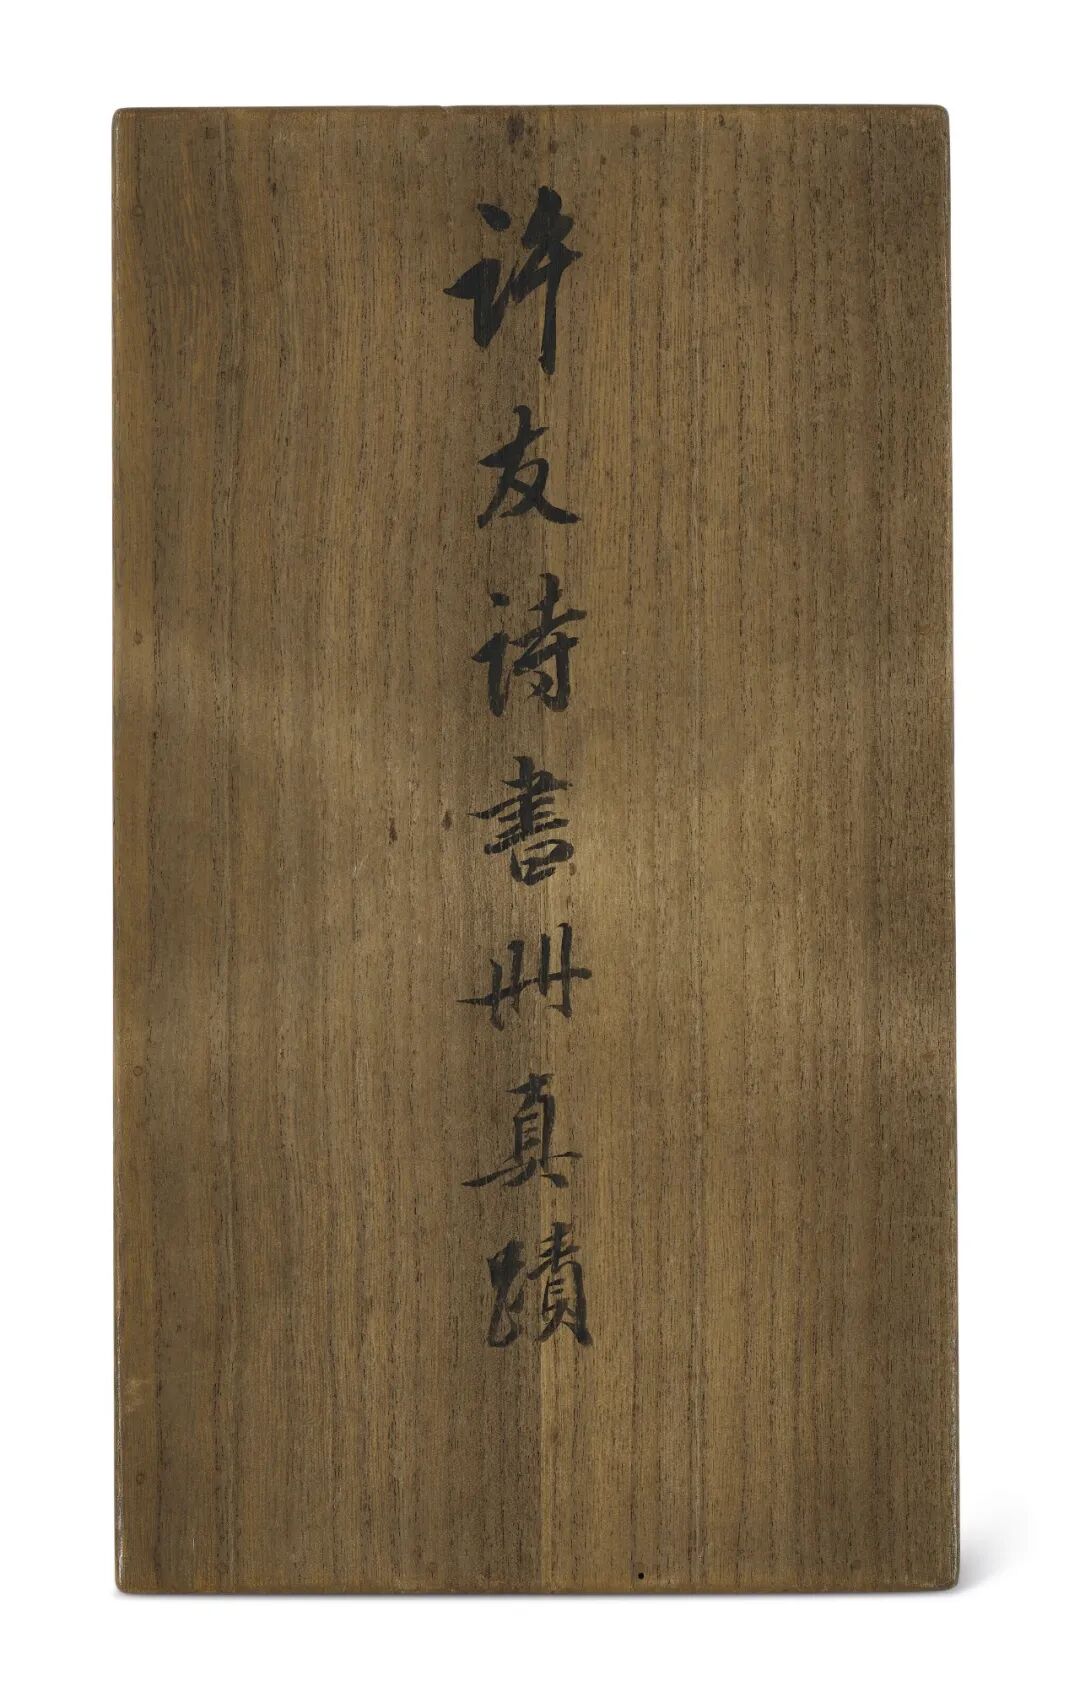 許友詩書冊真蹟